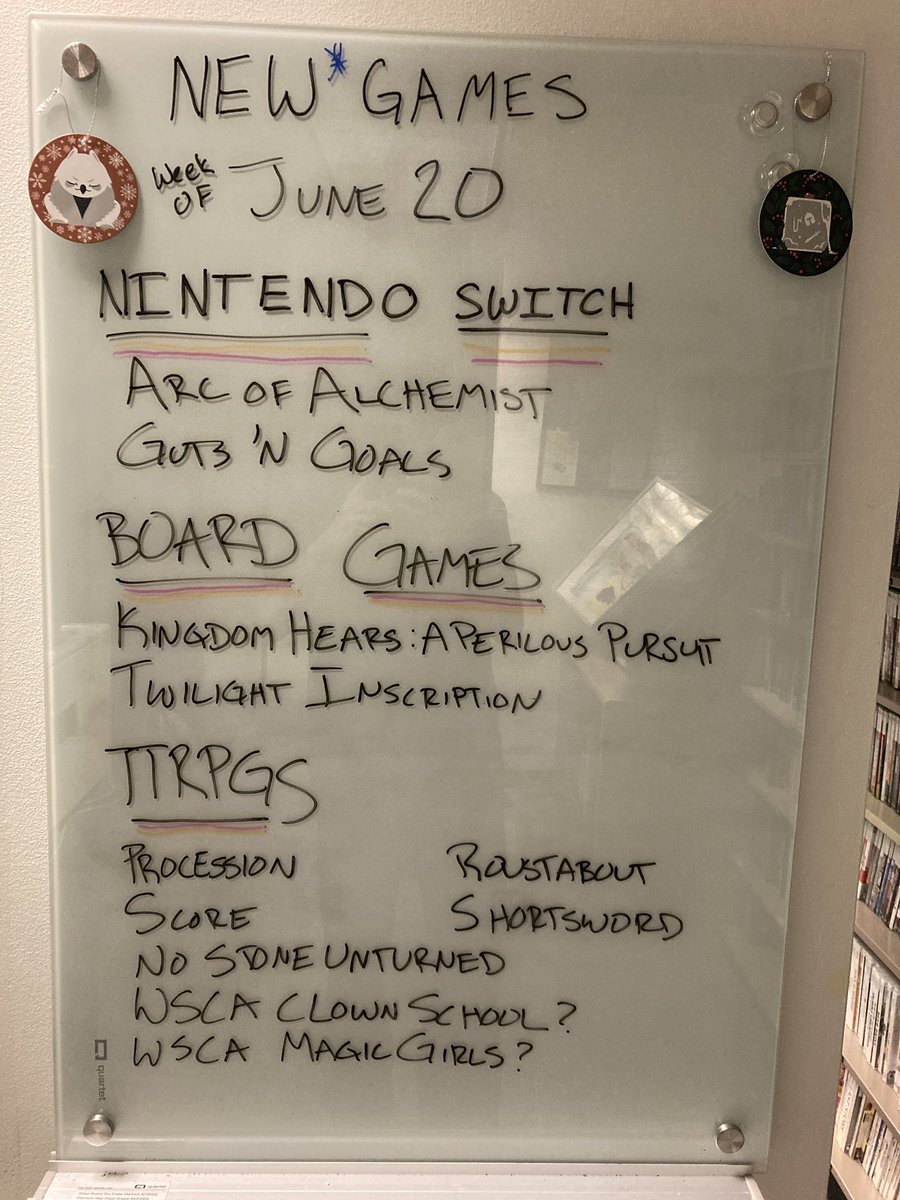 NEW* GAMES
Week OF JUNE 20
NINTENDO SWITCH
ARC OF ALCHEMIST
GUTS 'N GOALS
BOARD GAMES
KINGDOM HEARS: A PERILOUS PURSUT
TWILIGHT INSCRIPTION
TTRPGS
PROCESSION ROUSTABOUT
SCORE SHORTSWORD
NO STONE UNTURNED
WSCA CLOWN SCHOOL?
WSCA MAGIC GIRLS?
quartet